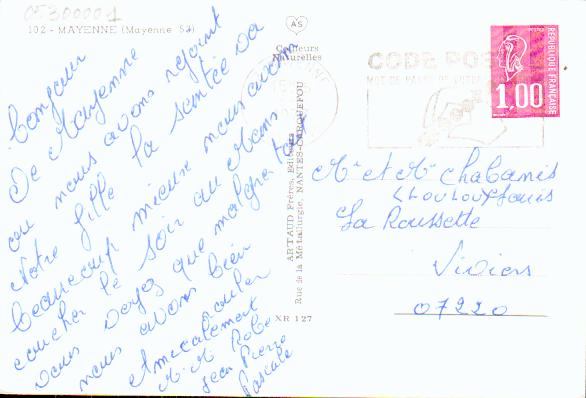 05300001
102 - MAYENNE (Mayenne 53)
AS
Couleurs
Naturelles
Bonjour
De Mayenne
ou nous avons rejoint
Notre fille la santée va
beaucoup mieux nous avons
coucher le soir au Mans
vous voyez que malgré tout
nous avons bien
rouler
Amicalement
M. M Robe
Jean Pierre
Pascale
ARTAUD Frères, Editeurs
Rue de la Métallurgie, NANTES-CARQUEFOU
XR 127
CODE POS
MOT DE PASSE DE VOTRE
REPUBLIQUE FRANÇAISE
1,00
Mr et Me Chabanis
Louis
La Roussette
Viviers
07220